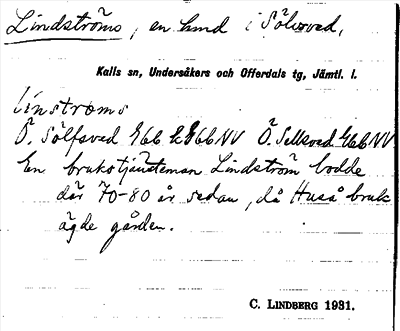 Lindströms, en hmd i Sölvsved,
Kalls sn, Undersåkers och Offerdals tg, Jämtl. l.
linstroms
Ö. Sölfsved 466 NV Ö. Sillsved 466 NV
En brukstjänsteman Lindström bodde
där 70-80 år sedan, då Huså bruk
ägde gården.
C. LINDBERG 1931.